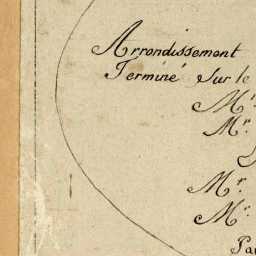 Arrondissement
Terminé Sur le
Mr.
Mr.
Mr.
Mr.
Par